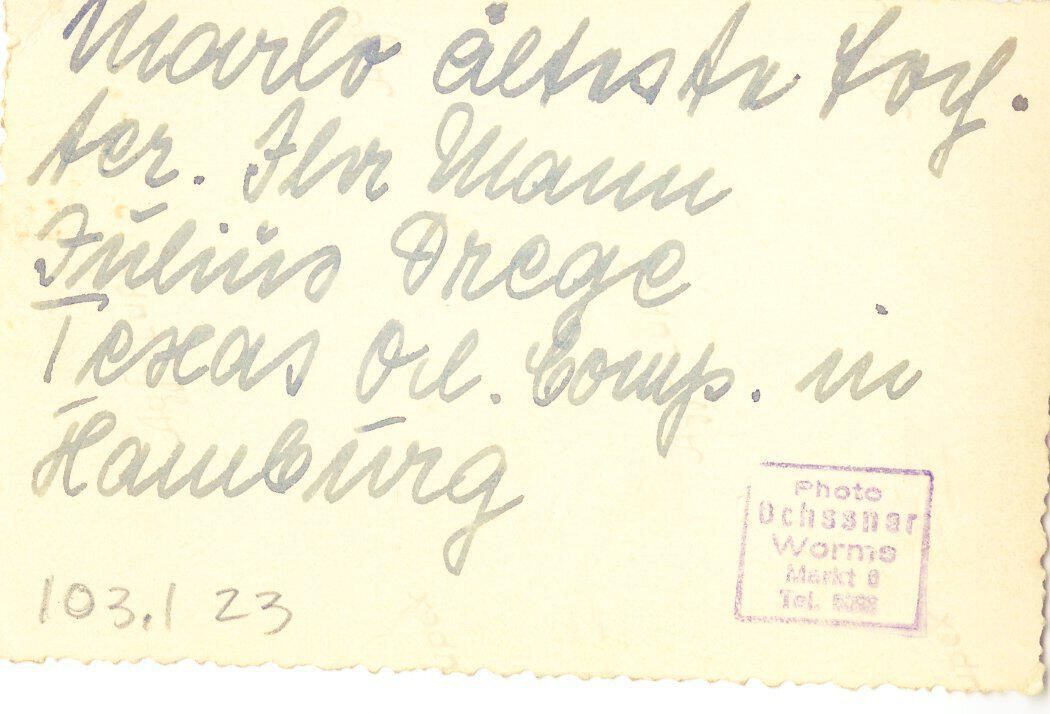 Marlo älteste Toch.
ter. Ihr Mann
Julius Drege
Texas Oel. Comp. in
Hamburg
103.1 23
Photo
Ochssner
Worms
Markt
Tel.